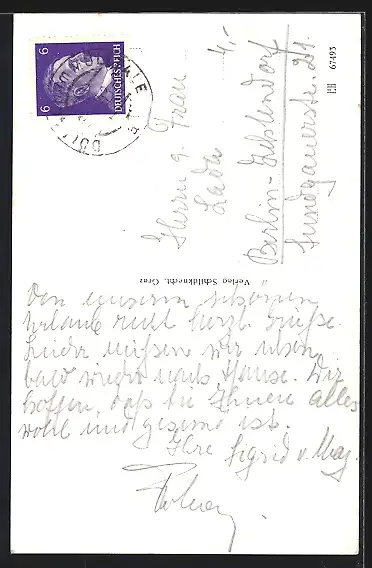 6 6
DEUTSCHES REICH
4,-
Herrn u. Frau
Lada
Berlin-Zehlendorf
Sundgauerstr. 21.
EH 67493
Verlag Schildknecht, Graz
Von unserem schönen
Urlaub recht herzl. Grüße.
Leider müssen wir schon
bald wieder nach Hause. Wir
hoffen, daß bei Ihnen alles
wohl und gesund ist.
Ihre Sigrid v.